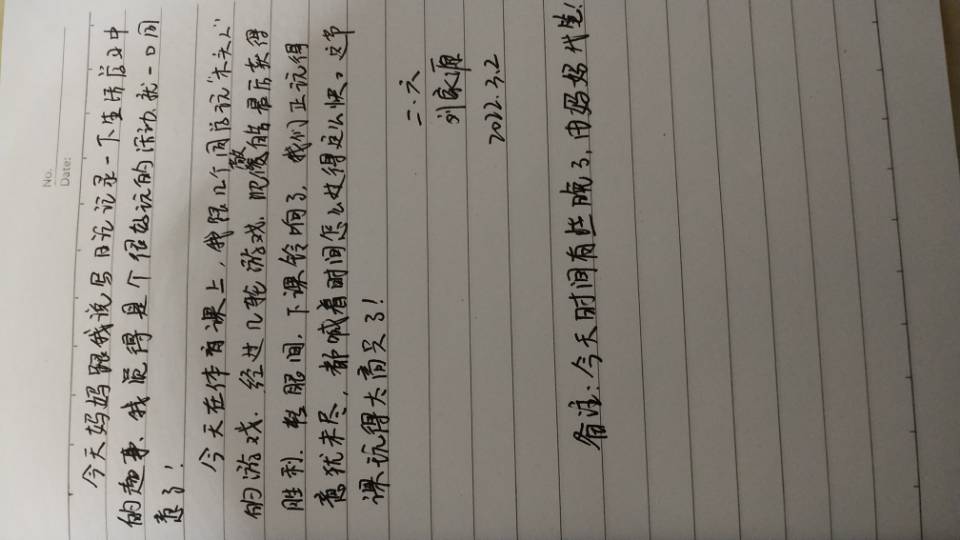 No.
Date:
今天妈妈跟我说写日记记录一下生活当中
的趣事、我觉得是个很好玩的活动就一口同
意了！
今天在体育课上，我跟几个同学玩“木头人”
的游戏．经过几轮游戏．能最后获得
胜利．转眼间．下课铃响了，我们正玩得
意犹未尽，都喊着时间怎么过得这么快。这节
课玩得太高兴了！
二．六
刘家源
2022.3.2
备注：今天时间有些晚了，由妈妈代笔！